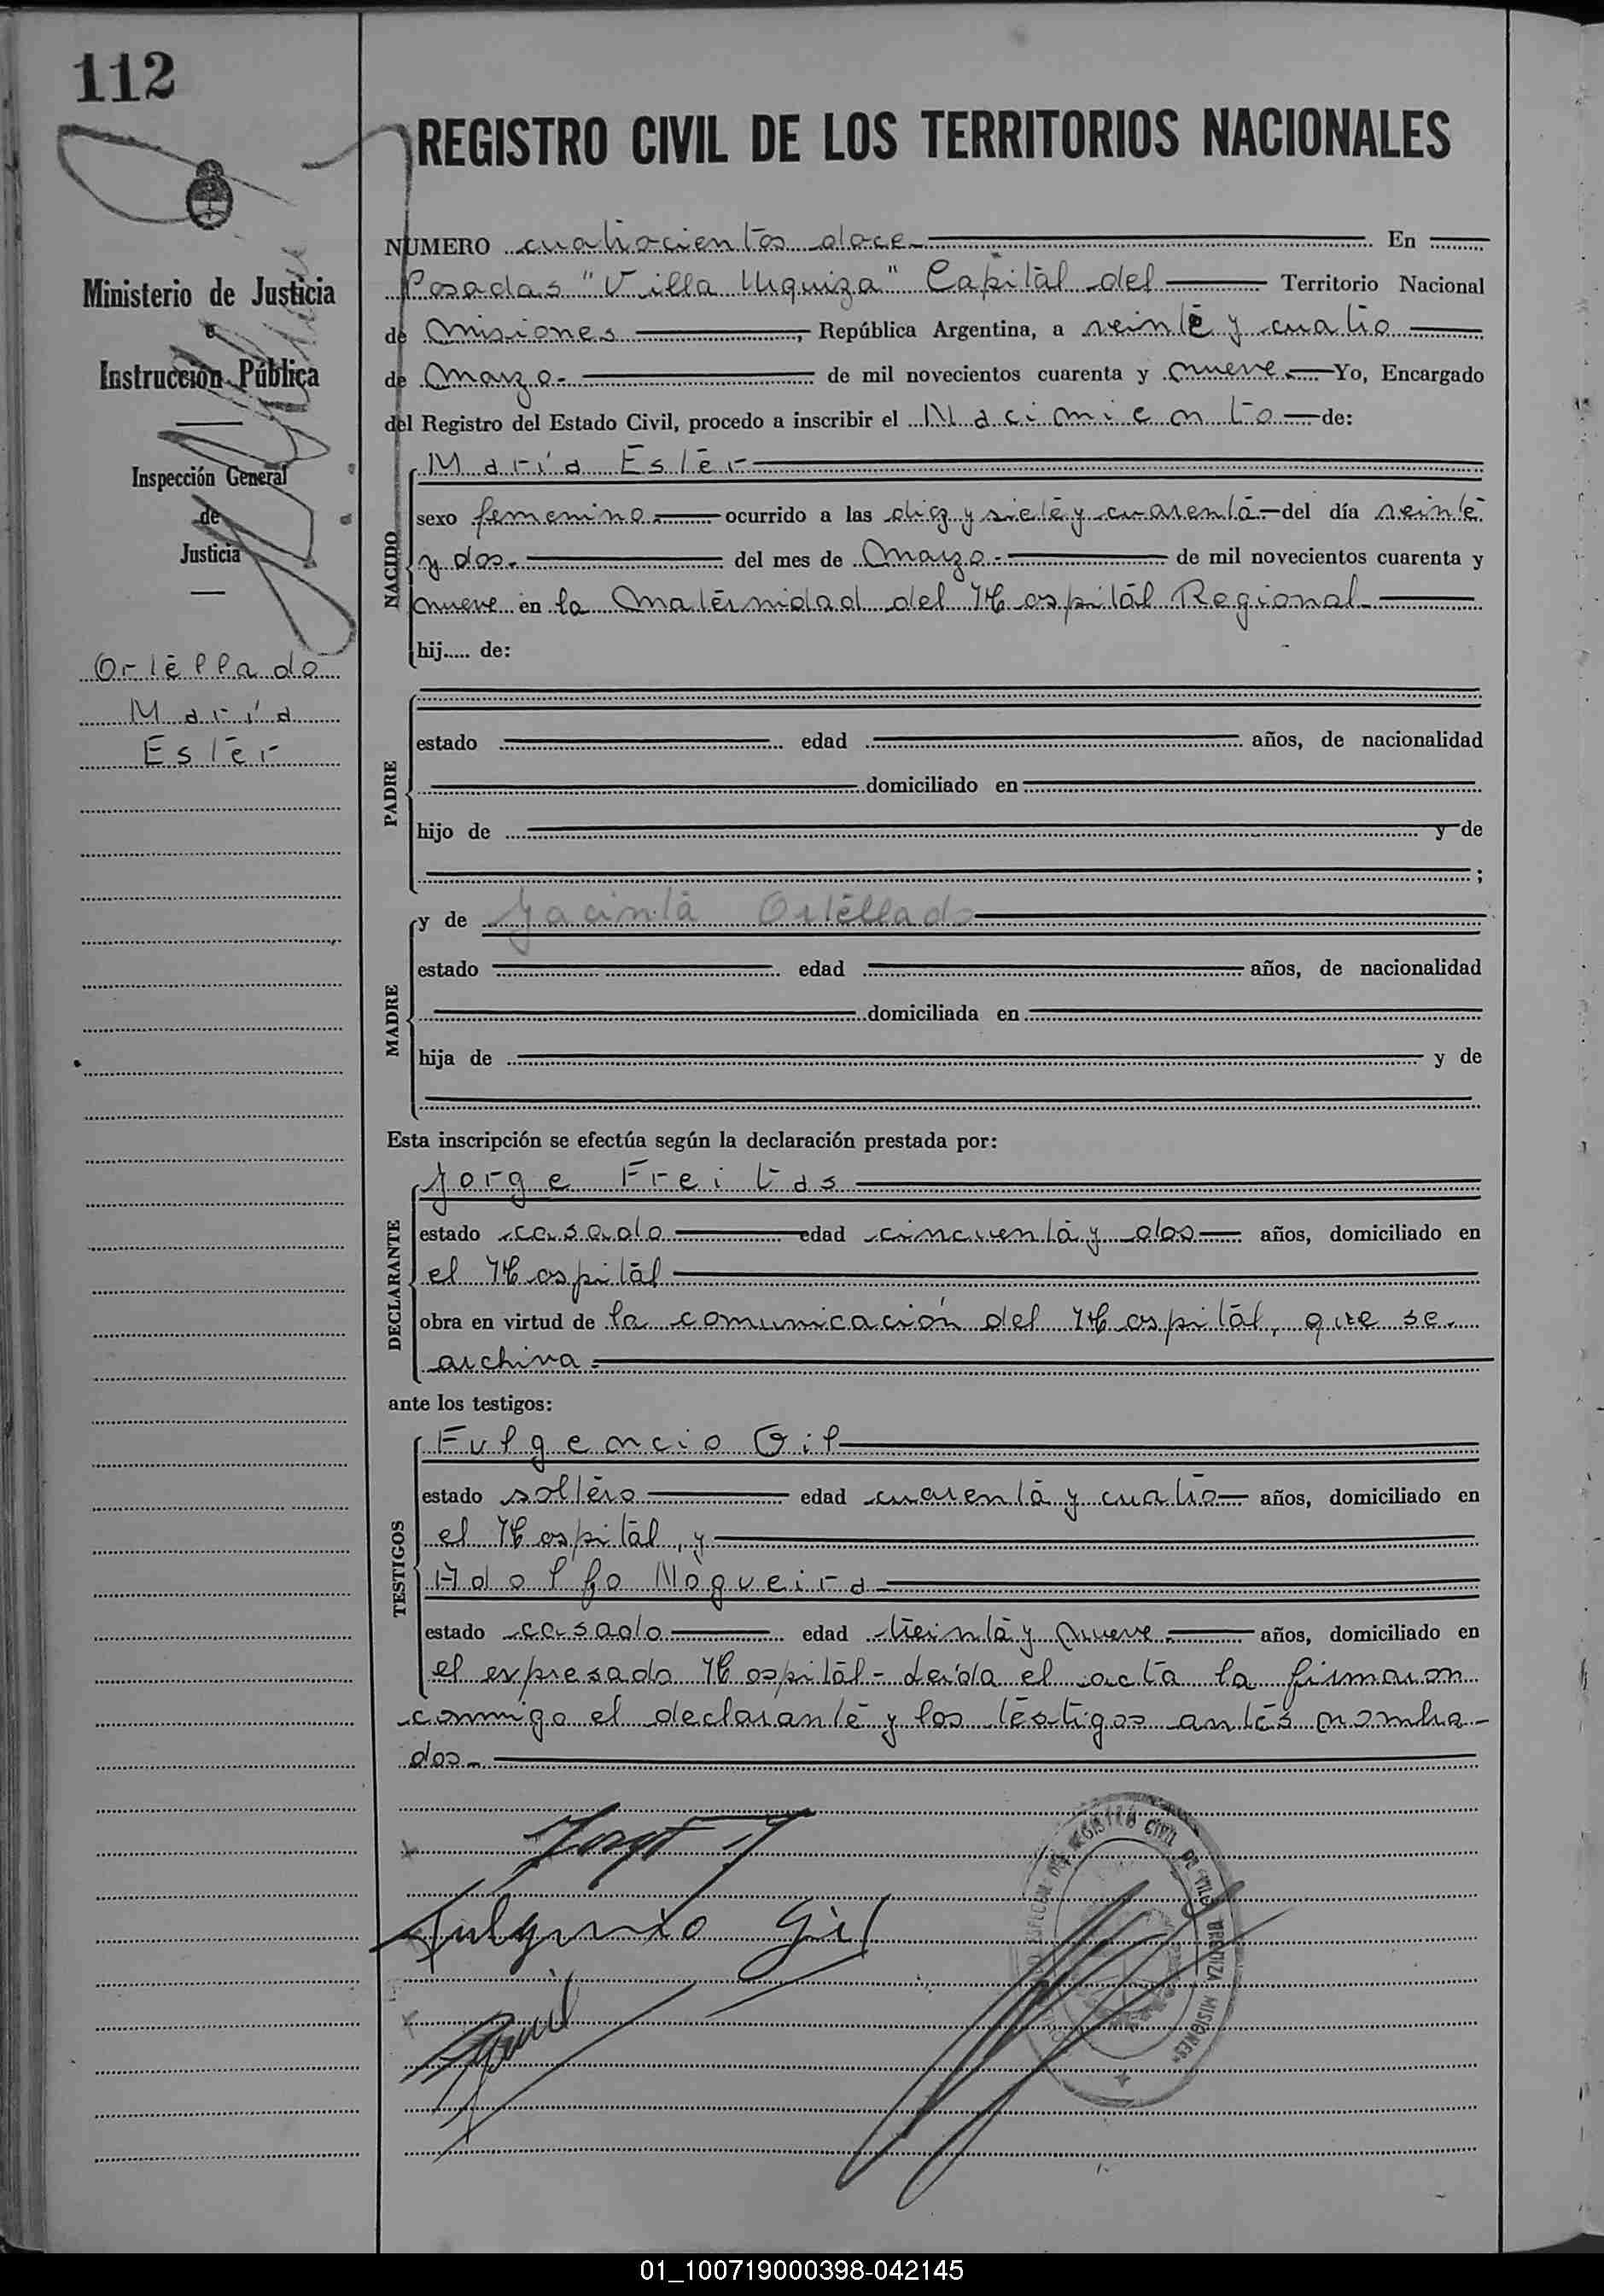 112
REGISTRO CIVIL DE LOS TERRITORIOS NACIONALES
Ministerio de Justicia
e
Instrucción Pública
Inspección General
de
Justicia
Ortellado
María
Ester
NUMERO cuatrocientos doce.- En
Posadas "Villa Urquiza" Capital del Territorio Nacional
de Misiones, República Argentina, a veinte y cuatro
de Marzo.- de mil novecientos cuarenta y nueve.- Yo, Encargado
del Registro del Estado Civil, procedo a inscribir el Nacimiento de:
NACIDO
María Ester
sexo femenino.- ocurrido a las diez y siete y cuarenta.- del día veinte
y dos.- del mes de Marzo.- de mil novecientos cuarenta y
nueve en la Maternidad del Hospital Regional.-
hij..... de:
PADRE
estado edad años, de nacionalidad
domiciliado en
hijo de y de
;
MADRE
y de Jacinta Ortellado
estado edad años, de nacionalidad
domiciliada en
hija de y de
Esta inscripción se efectúa según la declaración prestada por:
DECLARANTE
Jorge Freitas
estado casado edad cincuenta y dos años, domiciliado en
el Hospital
obra en virtud de la comunicación del Hospital, que se
archiva.-
ante los testigos:
TESTIGOS
Fulgencio Gil
estado soltero edad cuarenta y cuatro años, domiciliado en
el Hospital, y
Adolfo Nogueira
estado casado edad treinta y nueve.- años, domiciliado en
el expresado Hospital.- Leída el acta la firmaron
conmigo el declarante y los testigos antes nombra-
dos.-
Fulgencio Gil
REGISTRO CIVIL DE VILLA URQUIZA MISIONES
01_100719000398-042145